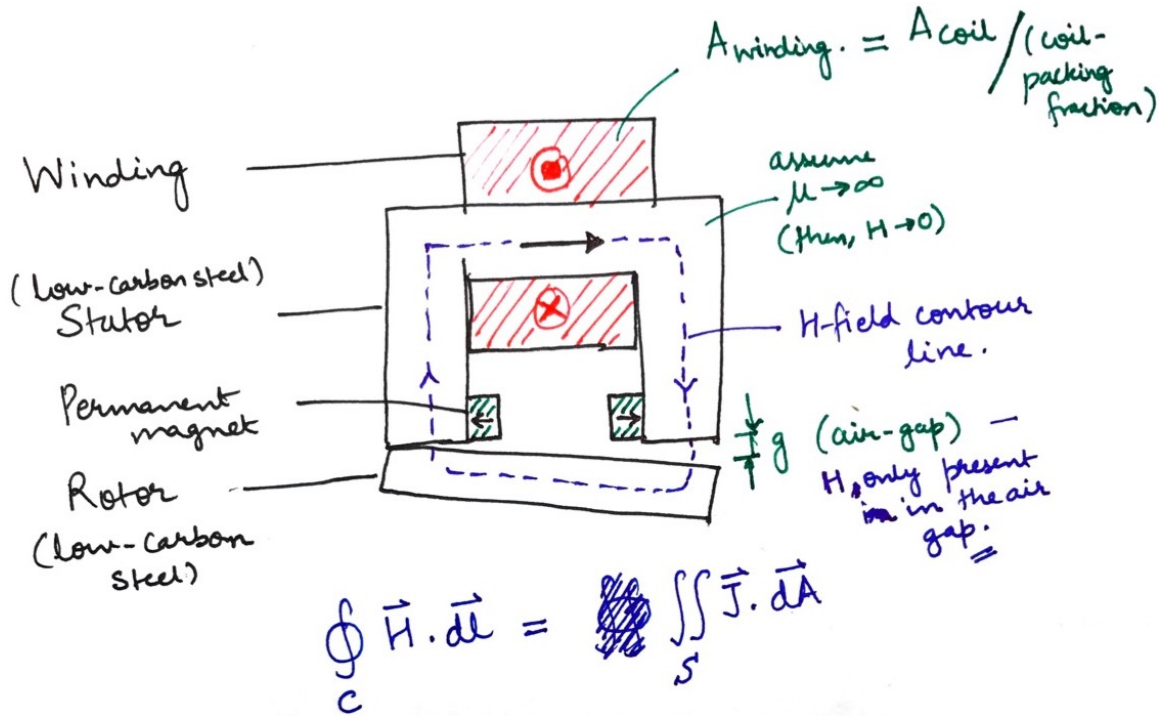 A winding. = A coil / (coil-
packing
fraction)
Winding
assume
μ → ∞
(then, H → 0)
(low-carbon steel)
Stator
H-field contour
line.
Permanent
magnet
g (air-gap) —
H only present
in the air
gap.
Rotor
(low-carbon
steel)
∮ H⃗ . dl⃗ = ∬ J⃗ . dA⃗
C S